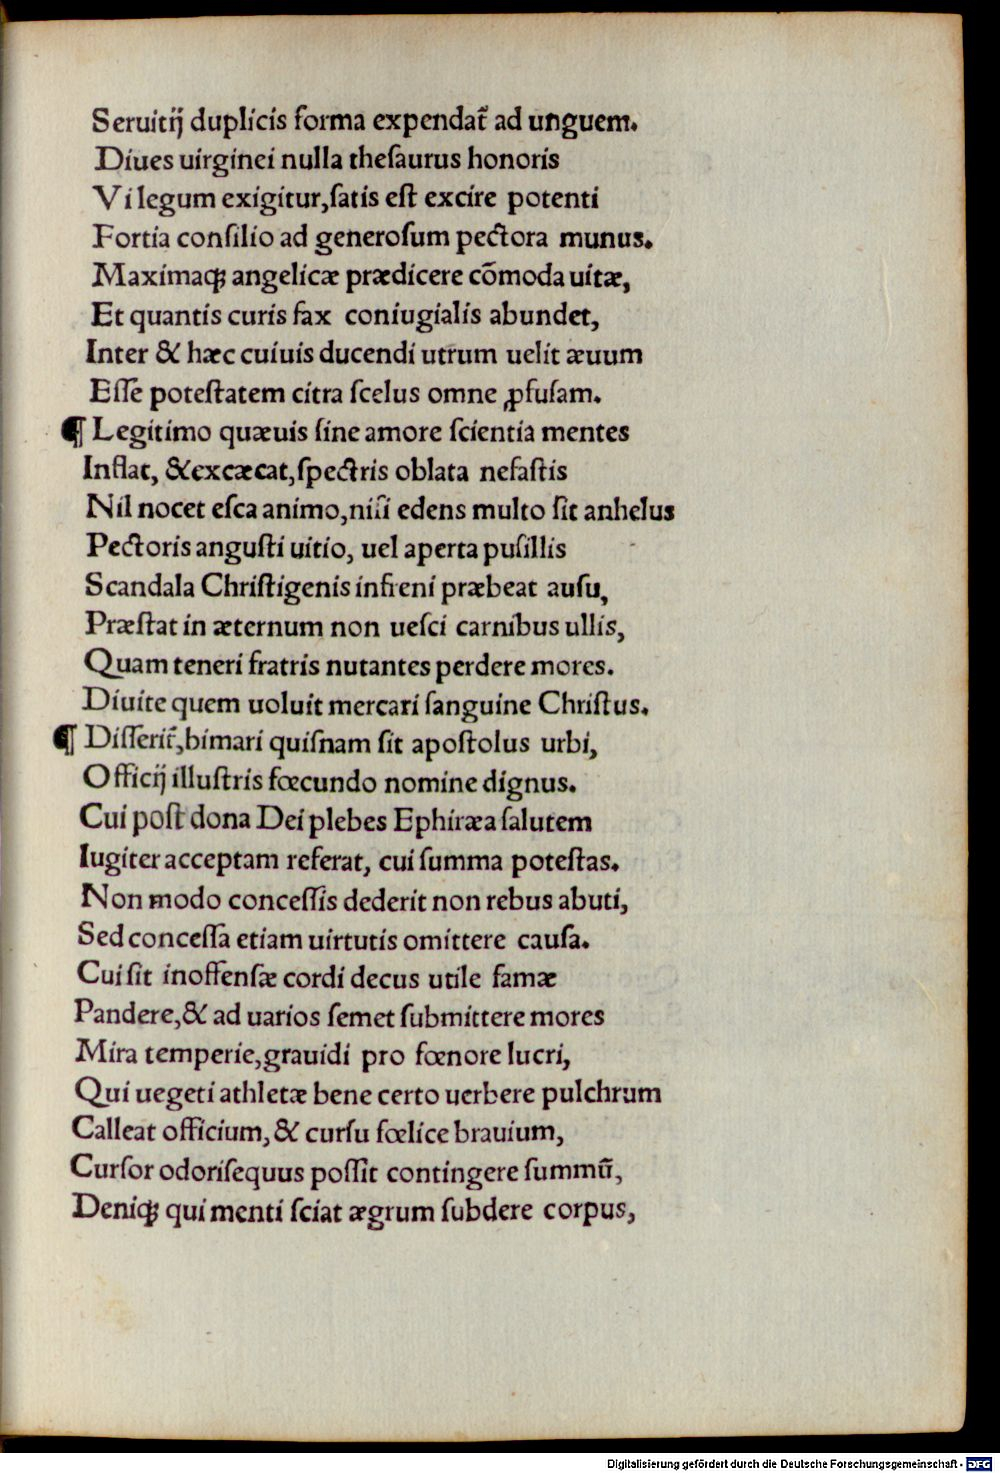 Seruitij duplicis forma expendat᷑ ad unguem.
Diues uirginei nulla theſaurus honoris
Vi legum exigitur,ſatis eſt excire potenti
Fortia conſilio ad generoſum pectora munus.
Maximaqꝫ angelicæ prædicere cōmoda uitæ,
Et quantis curis fax coniugialis abundet,
Inter & hæc cuiuis ducendi utrum uelit æuum
Eſſe poteſtatem citra ſcelus omne ꝓfuſam.
¶ Legitimo quæuis ſine amore ſcientia mentes
Inflat, &excæcat,ſpectris oblata nefaſtis
Nil nocet eſca animo,niſi edens multo ſit anhelus
Pectoris anguſti uitio, uel aperta puſillis
Scandala Chriſtigenis infreni præbeat auſu,
Præſtat in æternum non ueſci carnibus ullis,
Quam teneri fratris nutantes perdere mores.
Diuite quem uoluit mercari ſanguine Chriſtus.
¶ Diſſerit᷑,bimari quiſnam ſit apoſtolus urbi,
Officij illuſtris fœcundo nomine dignus.
Cui poſt dona Dei plebes Ephiræa ſalutem
Iugiter acceptam referat, cui ſumma poteſtas.
Non modo conceſſis dederit non rebus abuti,
Sed conceſſa etiam uirtutis omittere cauſa.
Cui ſit inoffenſæ cordi decus utile famæ
Pandere,& ad uarios ſemet ſubmittere mores
Mira temperie,grauidi pro fœnore lucri,
Qui uegeti athletæ bene certo uerbere pulchrum
Calleat officium,& curſu fœlice brauium,
Curſor odoriſequus poſſit contingere ſummū,
Deniqꝫ qui menti ſciat ægrum ſubdere corpus,
Digitalisierung gefördert durch die Deutsche Forschungsgemeinschaft - DFG